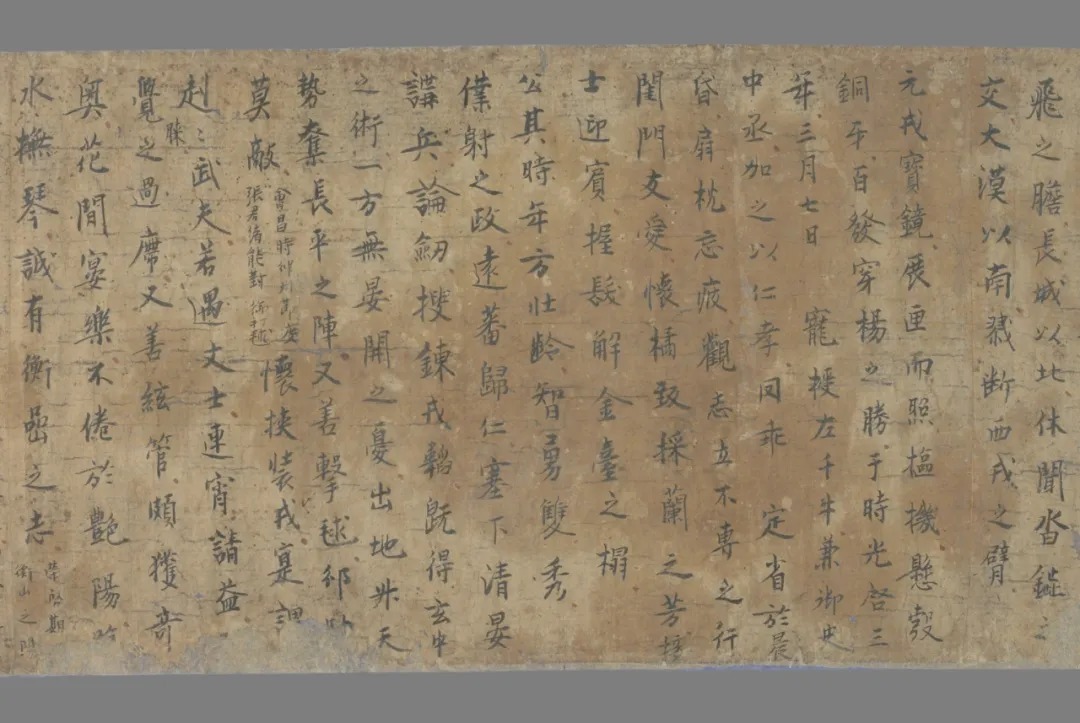 飛之膽長城以北休聞沓鎚之
交大漠以南戮斷西戎之臂
元戎寶鏡展匣而照樞機懸彀
銅牙百發穿楊之勝于時光啓三
年三月七日 寵授左千牛兼御史
中丞加之以仁孝同乖 定省於晨
昏扇枕忘疲觀志立不專之行
閨門友愛懷橘致採蘭之芳
士迎賓握髮解金臺之榻
公其時年方壯齡智勇雙秀
僕射之政遠蕃歸仁塞下清晏
講兵論劒搜鍊戎韜既得玄中
之術一方無晏開之憂出地昇天
勢奪長平之陣又善擊毬邠
莫敵 會昌時邠州
張君緒能對 打毬 懷挾裝戎寔謂
赳〻武夫若遇文士連宵請益
朕
覺之過席又善絃管頗獲奇
奧花間宴樂不倦於艷陽
水撫琴誠有衡嵒之志 榮啓期
衡山之